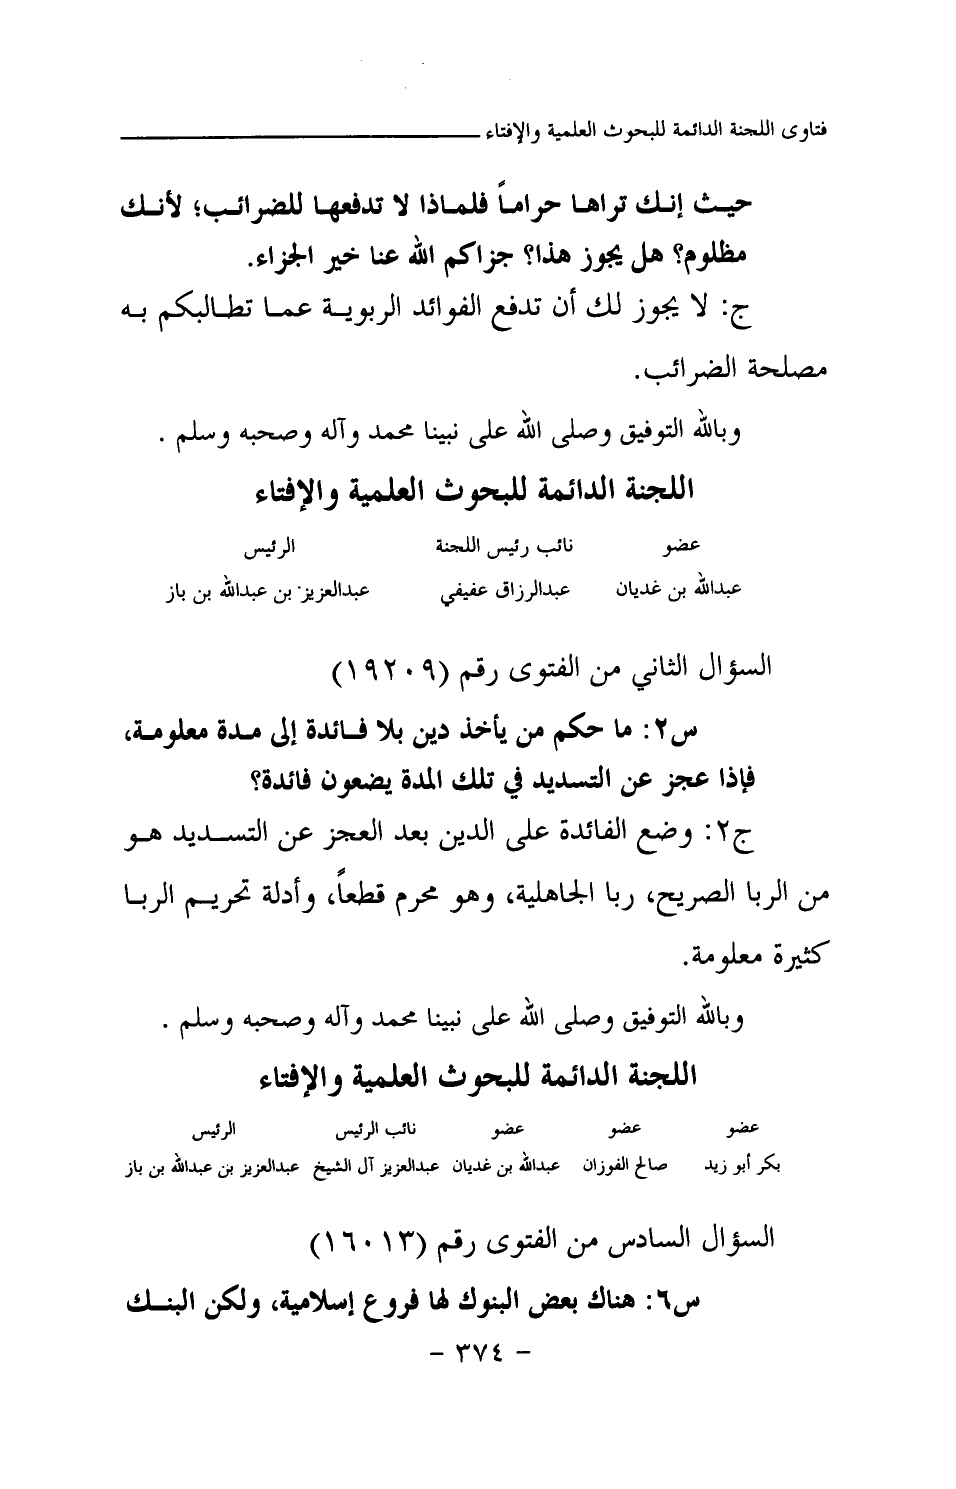 فتاوى اللجنة الدائمة للبحوث العلمية والإفتاء
حيث إنك تراها حراماً فلماذا لا تدفعها للضرائب؛ لأنك
مظلوم؟ هل يجوز هذا؟ جزاكم الله عنا خير الجزاء.
ج: لا يجوز لك أن تدفع الفوائد الربوية عما تطالبكم به
مصلحة الضرائب.
وبالله التوفيق وصلى الله على نبينا محمد وآله وصحبه وسلم .
اللجنة الدائمة للبحوث العلمية والإفتاء
عضو نائب رئيس اللجنة الرئيس
عبدالله بن غديان عبدالرزاق عفيفي عبدالعزيز بن عبدالله بن باز
السؤال الثاني من الفتوى رقم (١٩٢٠٩)
س٢: ما حكم من يأخذ دين بلا فائدة إلى مدة معلومة،
فإذا عجز عن التسديد في تلك المدة يضعون فائدة؟
ج٢: وضع الفائدة على الدين بعد العجز عن التسديد هو
من الربا الصريح، ربا الجاهلية، وهو محرم قطعاً، وأدلة تحريم الربا
كثيرة معلومة.
وبالله التوفيق وصلى الله على نبينا محمد وآله وصحبه وسلم .
اللجنة الدائمة للبحوث العلمية والإفتاء
عضو عضو عضو نائب الرئيس الرئيس
بكر أبو زيد صالح الفوزان عبدالله بن غديان عبدالعزيز آل الشيخ عبدالعزيز بن عبدالله بن باز
السؤال السادس من الفتوى رقم (١٦٠١٣)
س٦: هناك بعض البنوك لها فروع إسلامية، ولكن البنك
- ٣٧٤ -